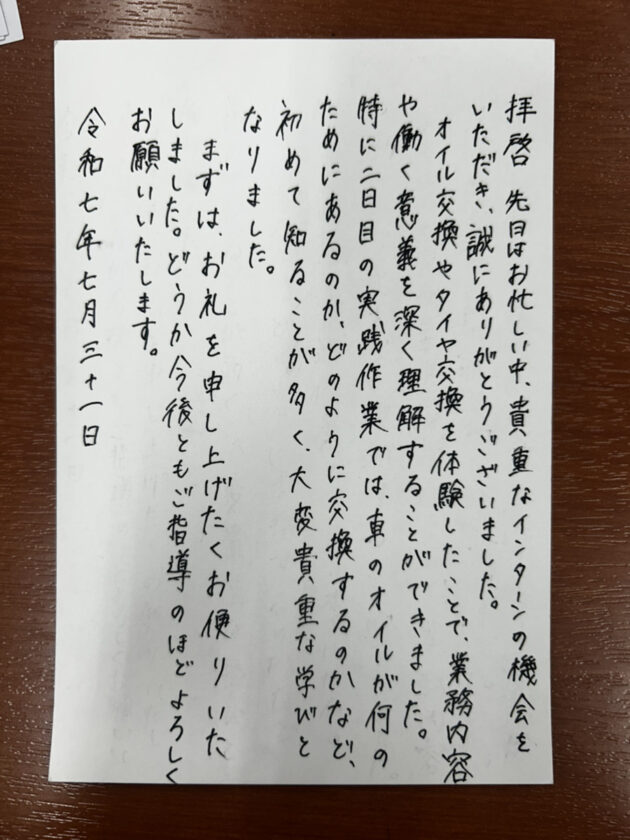 拝啓 先日はお忙しい中、貴重なインターンの機会を
いただき、誠にありがとうございました。
オイル交換やタイヤ交換を体験したことで、業務内容
や働く意義を深く理解することができました。
特に二日目の実践作業では、車のオイルが何の
ためにあるのか、どのように交換するのかなど、
初めて知ることが多く、大変貴重な学びと
なりました。
まずは、お礼を申し上げたくお便りいた
しました。どうか今後ともご指導のほどよろしく
お願いいたします。
令和七年七月三十一日